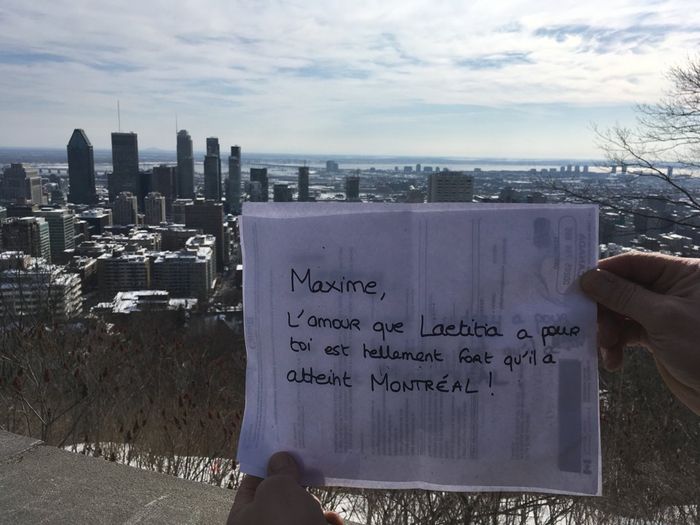 Maxime,
L'amour que Laetitia a pour
toi est tellement fort qu'il a
atteint MONTRÉAL !